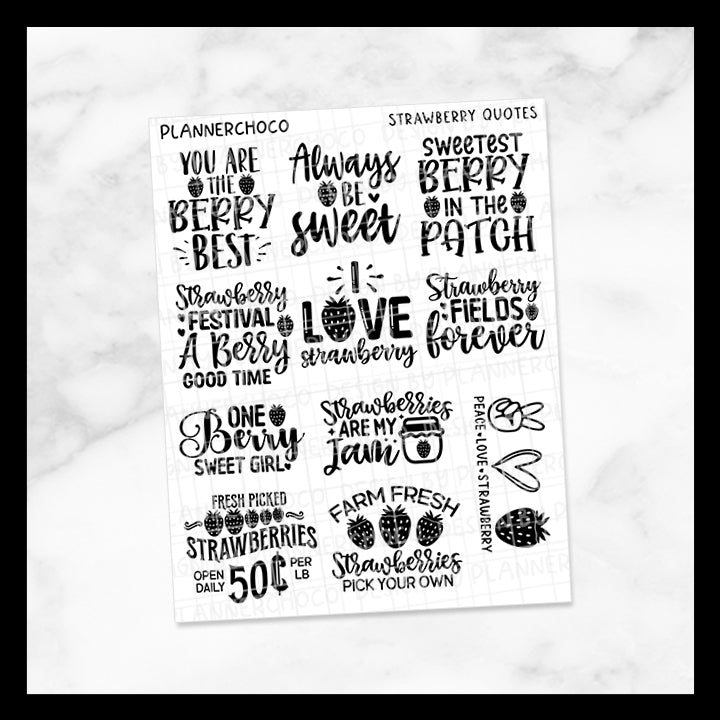 PLANNERCHOCO
STRAWBERRY QUOTES
YOU ARE
THE
BERRY
BEST
Always
BE
sweet
SWEETEST
BERRY
IN THE
PATCH
Strawberry
FESTIVAL
A Berry
GOOD TIME
I
LOVE
strawberry
Strawberry
FIELDS
forever
ONE
Berry
SWEET GIRL
Strawberries
ARE MY
Jam
PEACE LOVE STRAWBERRY
FRESH PICKED
STRAWBERRIES
OPEN
DAILY
50¢
PER
LB
FARM FRESH
Strawberries
PICK YOUR OWN
DESIGN BY PLANNERCHOCO